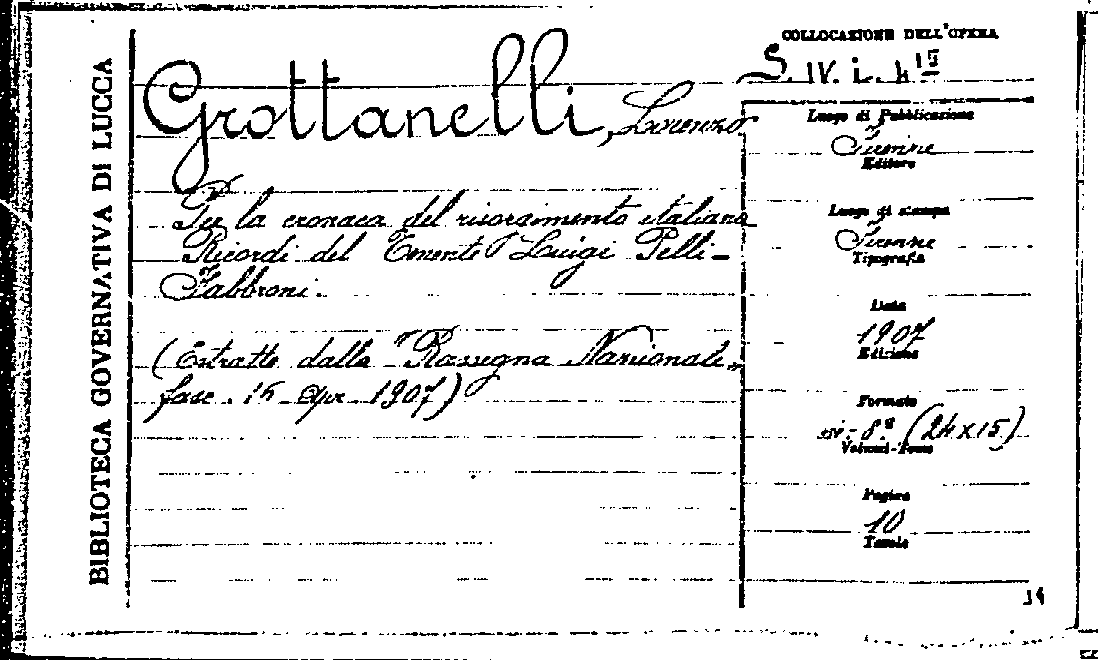 BIBLIOTECA GOVERNATIVA DI LUCCA
COLLOCAZIONE DELL'OPERA
S. IV. i. 4 15
Grottanelli, Lorenzo
Per la cronaca del risorgimento italiano
Ricordi del Tenente Luigi Pelli-
Fabbroni.
(Estratto dalla "Rassegna Nazionale„
fasc. 16 Apr. 1907)
Luogo di Pubblicazione
Firenze
Editore
Luogo di stampa
Firenze
Tipografia
Data
1907
Edizione
Formato
in-8° (24x15)
Volumi-Tomo
Pagine
10
Tavole